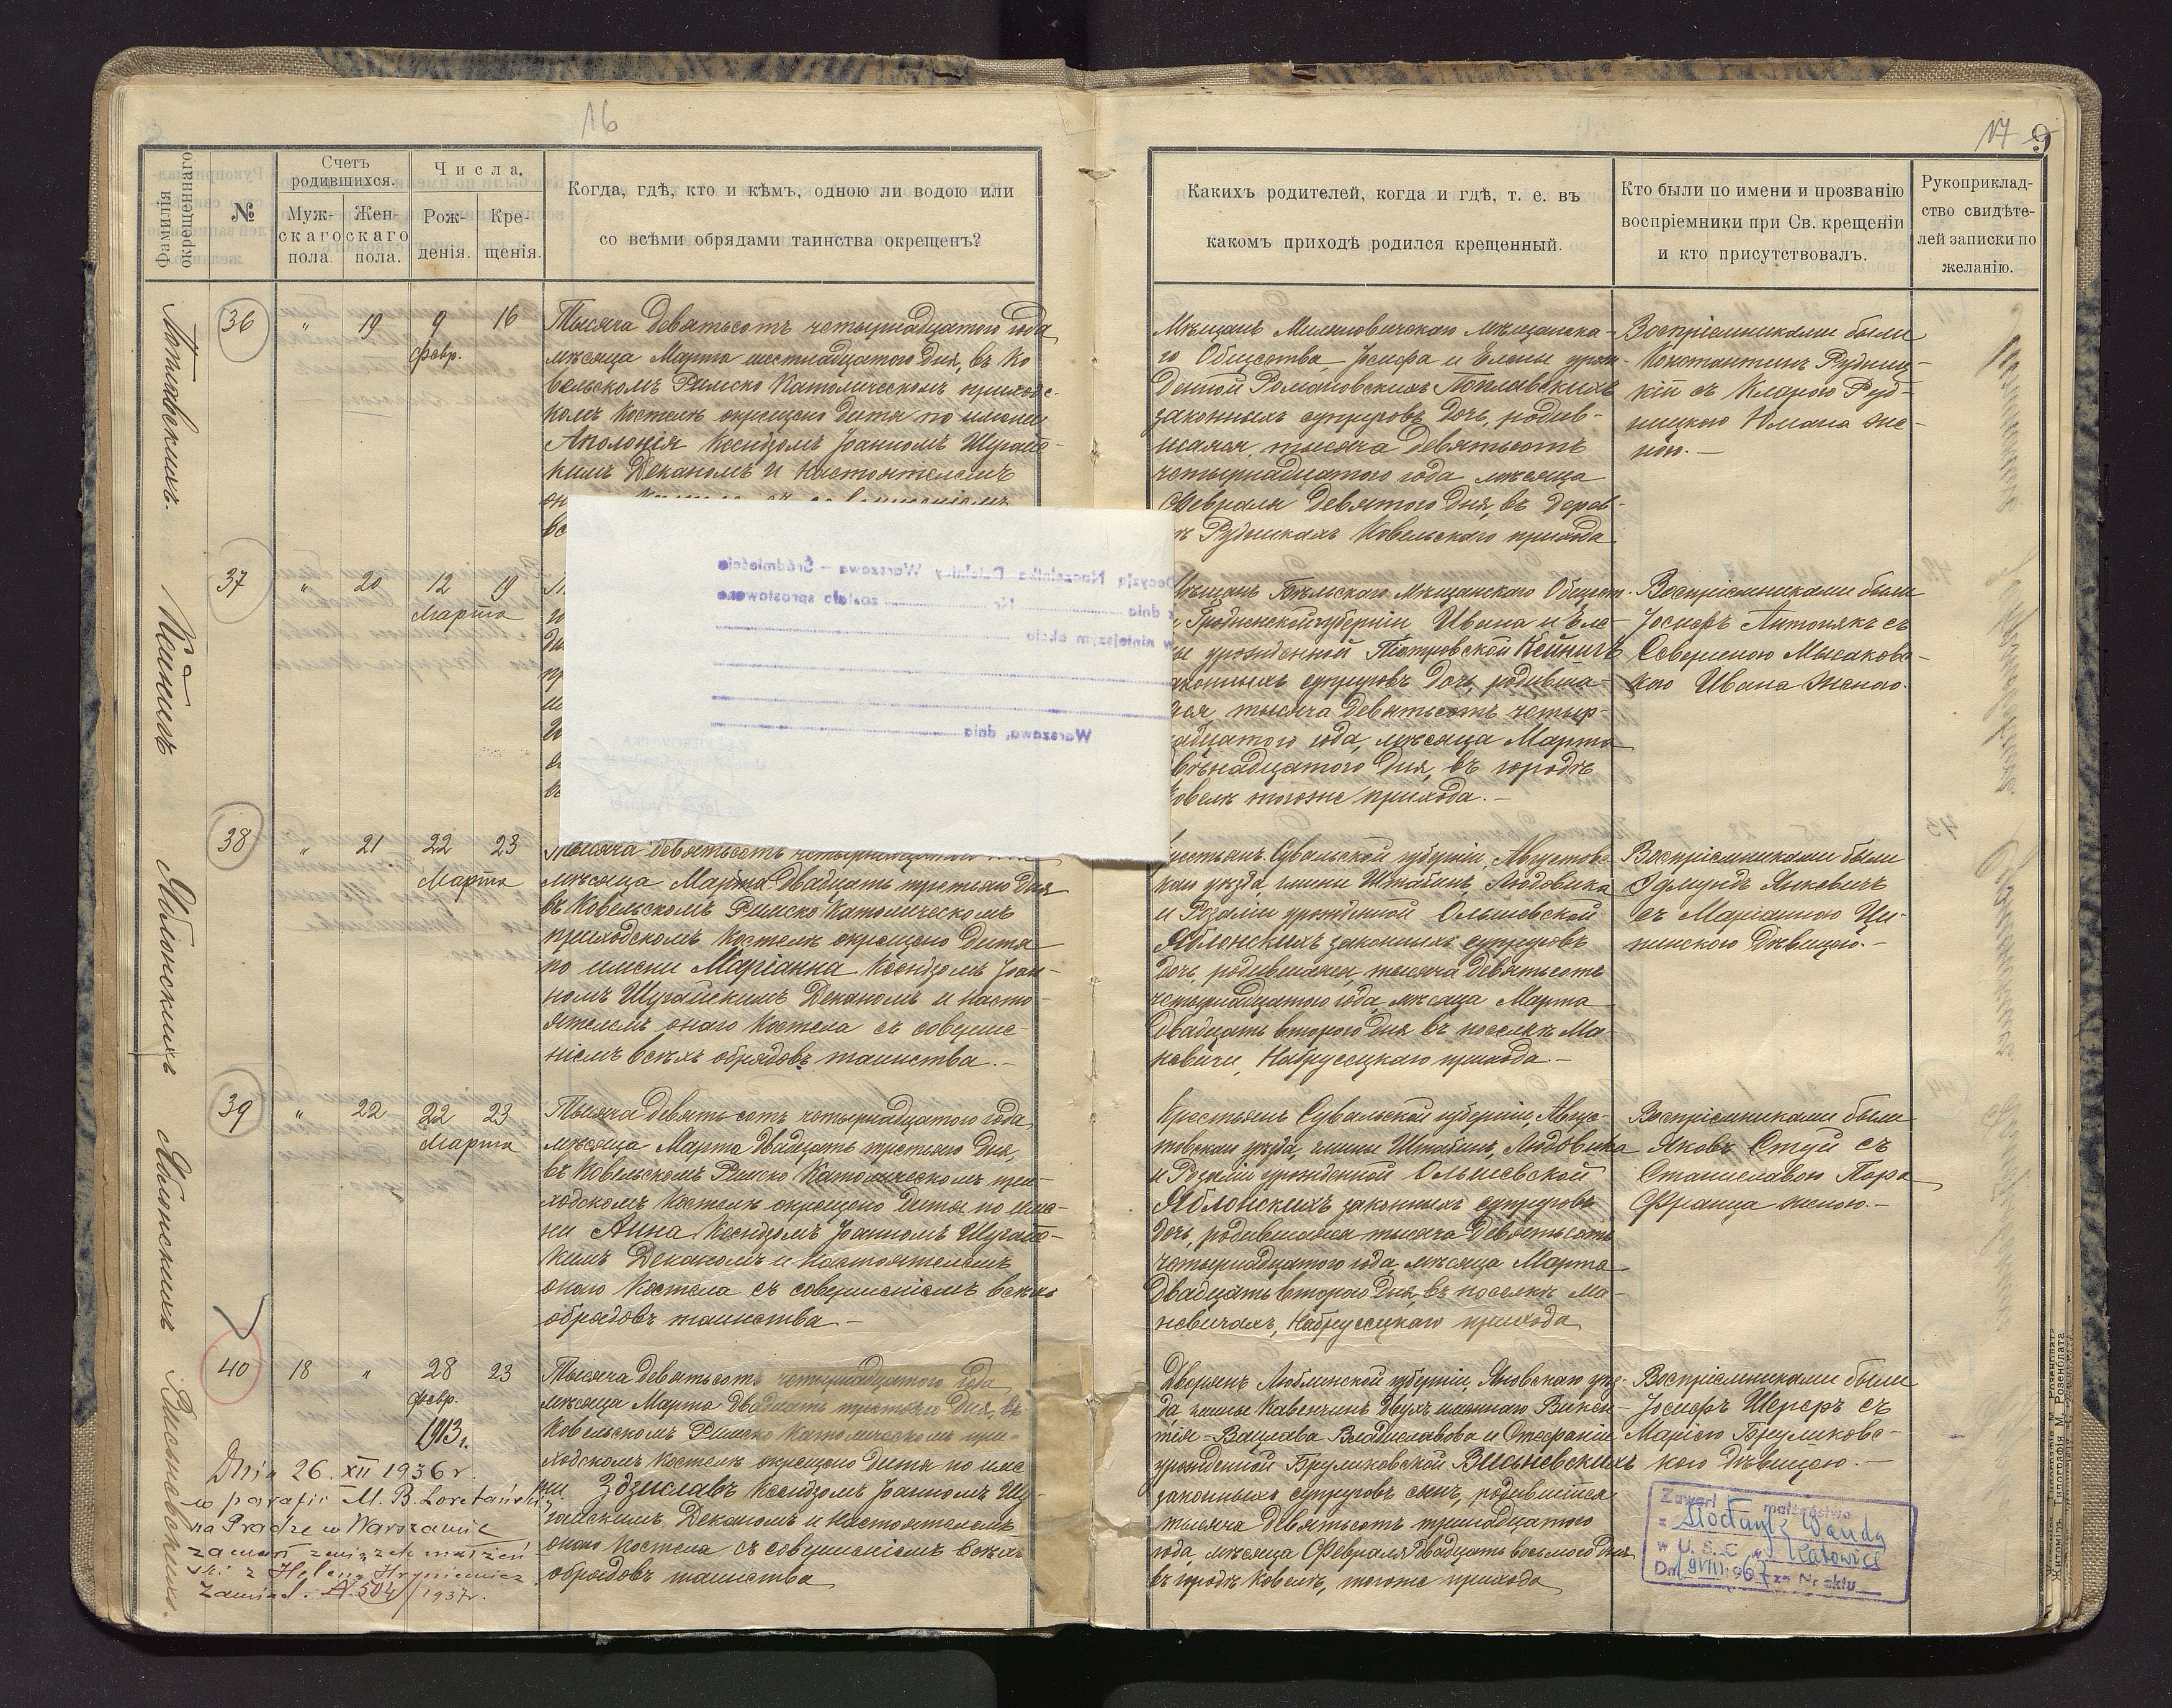 16
Фамилія окрещеннаго
№
Счетъ родившихся.
Муж-
скаго
пола.
Жен-
скаго
пола.
Числа.
Рож-
денія.
Кре-
щенія.
Когда, гдѣ, кто и кѣмъ, одною ли водою или
со всѣми обрядами таинства окрещенъ?
36 " 19 9 16
февр.
Тысяча девятьсотъ четырнадцатого года
мѣсяца Марта шестнадцатого дня, въ Ко
вельскомъ Римско Католическомъ приходс-
комъ костелѣ окрещено дитя по имени
Аполонія Ксендзомъ Іоанномъ Шугайс-
кимъ Деканомъ и Настоятелемъ
37 " 20 12 19
Марта
Кейничъ
38 " 21 22 23
Марта
Яблонскихъ
Тысяча девятьсотъ
мѣсяца Марта двадцать третьяго дня
въ Ковельскомъ Римско Католическомъ
приходскомъ костелѣ окрещено дитя
по имени Маріанна Ксендзомъ Іоан-
номъ Шугайскимъ Деканомъ и Насто-
ятелемъ онаго костела съ соверше-
ніемъ всѣхъ обрядовъ таинства.-
39 " 22 22 23
Марта
Яблонскихъ
Тысяча девятьсотъ четырнадцатого года,
мѣсяца Марта двадцать третьяго дня,
въ Ковельскомъ Римско Католическомъ при-
ходскомъ костелѣ окрещено дитя по име-
ни Анна Ксендзомъ Іоанномъ Шугайс-
кимъ Деканомъ и Настоятелемъ
онаго костела съ совершеніемъ всѣхъ
обрядовъ таинства.-
40 18 " 28 23
февр.
1913г.
Тысяча девятьсотъ четырнадцатого года
мѣсяца Марта двадцать третьяго дня, въ
Ковельскомъ Римско Католическомъ при-
ходскомъ костелѣ окрещено дитя по име
ни Здзиславъ Ксендзомъ Іоанномъ Шу-
гайскимъ Деканомъ и Настоятелемъ
онаго костела съ совершеніемъ всѣхъ
обрядовъ таинства
Dnia 26.XII 1936 r.
w parafii M. B. Loretańskiej
na Pradze w Warszawie
zawarł związek małżeń
ski z Heleną Hryniewicz.
Zawiad. № 504/1937 r.
Decyzją Naczelnika Dzielnicy Warszawa – Śródmieście
z dnia Nr. zostało sprostowane
w niniejszym akcie
Warszawa, dnia
17 9
Какихъ родителей, когда и гдѣ, т. е. въ
какомъ приходѣ родился крещенный.
Кто были по имени и прозванію
воспріемники при Св. крещеніи
и кто присутствовалъ.
Рукоприклад-
ство свидѣте-
лей записки по
желанію.
Іосифа и Елены урож-
денной Романовскихъ Поплавскихъ
законныхъ супруговъ дочь, родив-
шаяся тысяча девятьсотъ
четырнадцатого года мѣсяца
Февраля девятого дня, въ дерев-
Ковельскаго прихода
Воспріемниками были
Константинъ Рудниц-
кій съ Кларою Руд-
ницкою Юліана же-
ною.-
Мѣщанъ Бѣльскаго Мѣщанскаго Общест-
Гродненской губерніи Ивана и Еле-
ны урожденной Піотровской Кейничъ
законныхъ супруговъ дочь, родивша-
яся тысяча девятьсотъ четыр-
надцатого года, мѣсяца Марта
двѣнадцатого дня, въ городѣ
Ковелѣ тогоже прихода.-
Воспріемниками были
Іосифъ Антонякъ съ
Севериною Мысаковс-
кою Ивана женою.
Крестьянъ Сувальской губерніи, Августовс-
каго уѣзда, гмины Штабинъ, Людовика
и Розаліи урожденной Ольшевской
Яблонскихъ законныхъ супруговъ
дочь, родившаяся тысяча девятьсотъ
четырнадцатого года, мѣсяца Марта
двадцать второго дня въ поселкѣ Ма-
невичи, прихода.-
Воспріемниками были
Эдмундъ Янкевичъ
съ Маріанною Ци-
пинскою дѣвицею.-
Крестьянъ Сувальской губерніи, Авгус-
товскаго уѣзда, гмины Штабинъ, Людовика
и Розаліи урожденной Ольшевской
Яблонскихъ законныхъ супруговъ
дочь, родившаяся тысяча девятьсотъ
четырнадцатого года, мѣсяца Марта
двадцать второго дня, въ поселкѣ Ма-
невичахъ, прихода
Воспріемниками были
Яковъ Стуй съ
Станиславою Пора
Франца женою.-
Дворянъ Люблинской губерніи, Яновскаго уѣз-
да, гмины двухъ именнаго Викен-
тія-Вацлава Владиславова и Стефаніи
урожденной Бруликовской Висьневскихъ
законныхъ супруговъ сынъ, родившійся
тысяча девятьсотъ тринадцатого
года, мѣсяца Февраля двадцать восьмого дня
въ городѣ Ковелѣ, тогоже прихода
Воспріемниками были
Іосифъ Шереръ съ
Маріею Бруликовс-
кою дѣвицею.-
Zawarł małżeństwo
z Wandą
w U.S.C. w Katowice
Dn. 9 VIII 1967 za Nr aktu
Житомиръ, Типографія М. Розенблата